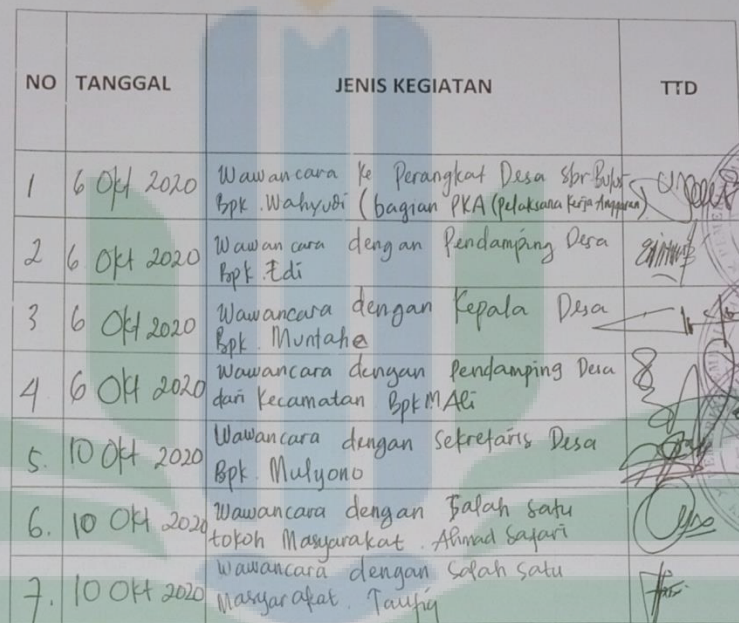 NO TANGGAL JENIS KEGIATAN TTD
1 6 Okt 2020 Wawancara ke Perangkat Desa sbr Bulus
Bpk. Wahyudi (bagian PKA (Pelaksana Kerja Anggaran)
2 6 Okt 2020 Wawancara dengan Pendamping Desa
Bpk Edi
3 6 Okt 2020 Wawancara dengan Kepala Desa
Bpk. Muntaha
4 6 Okt 2020 Wawancara dengan Pendamping Desa
dari Kecamatan Bpk M Ali
5. 10 Okt 2020 Wawancara dengan Sekretaris Desa
Bpk. Mulyono
6. 10 Okt 2020 Wawancara dengan Salah satu
tokoh Masyarakat. Ahmad Safari
7. 10 Okt 2020 Wawancara dengan Salah satu
Masyarakat. Taufiq